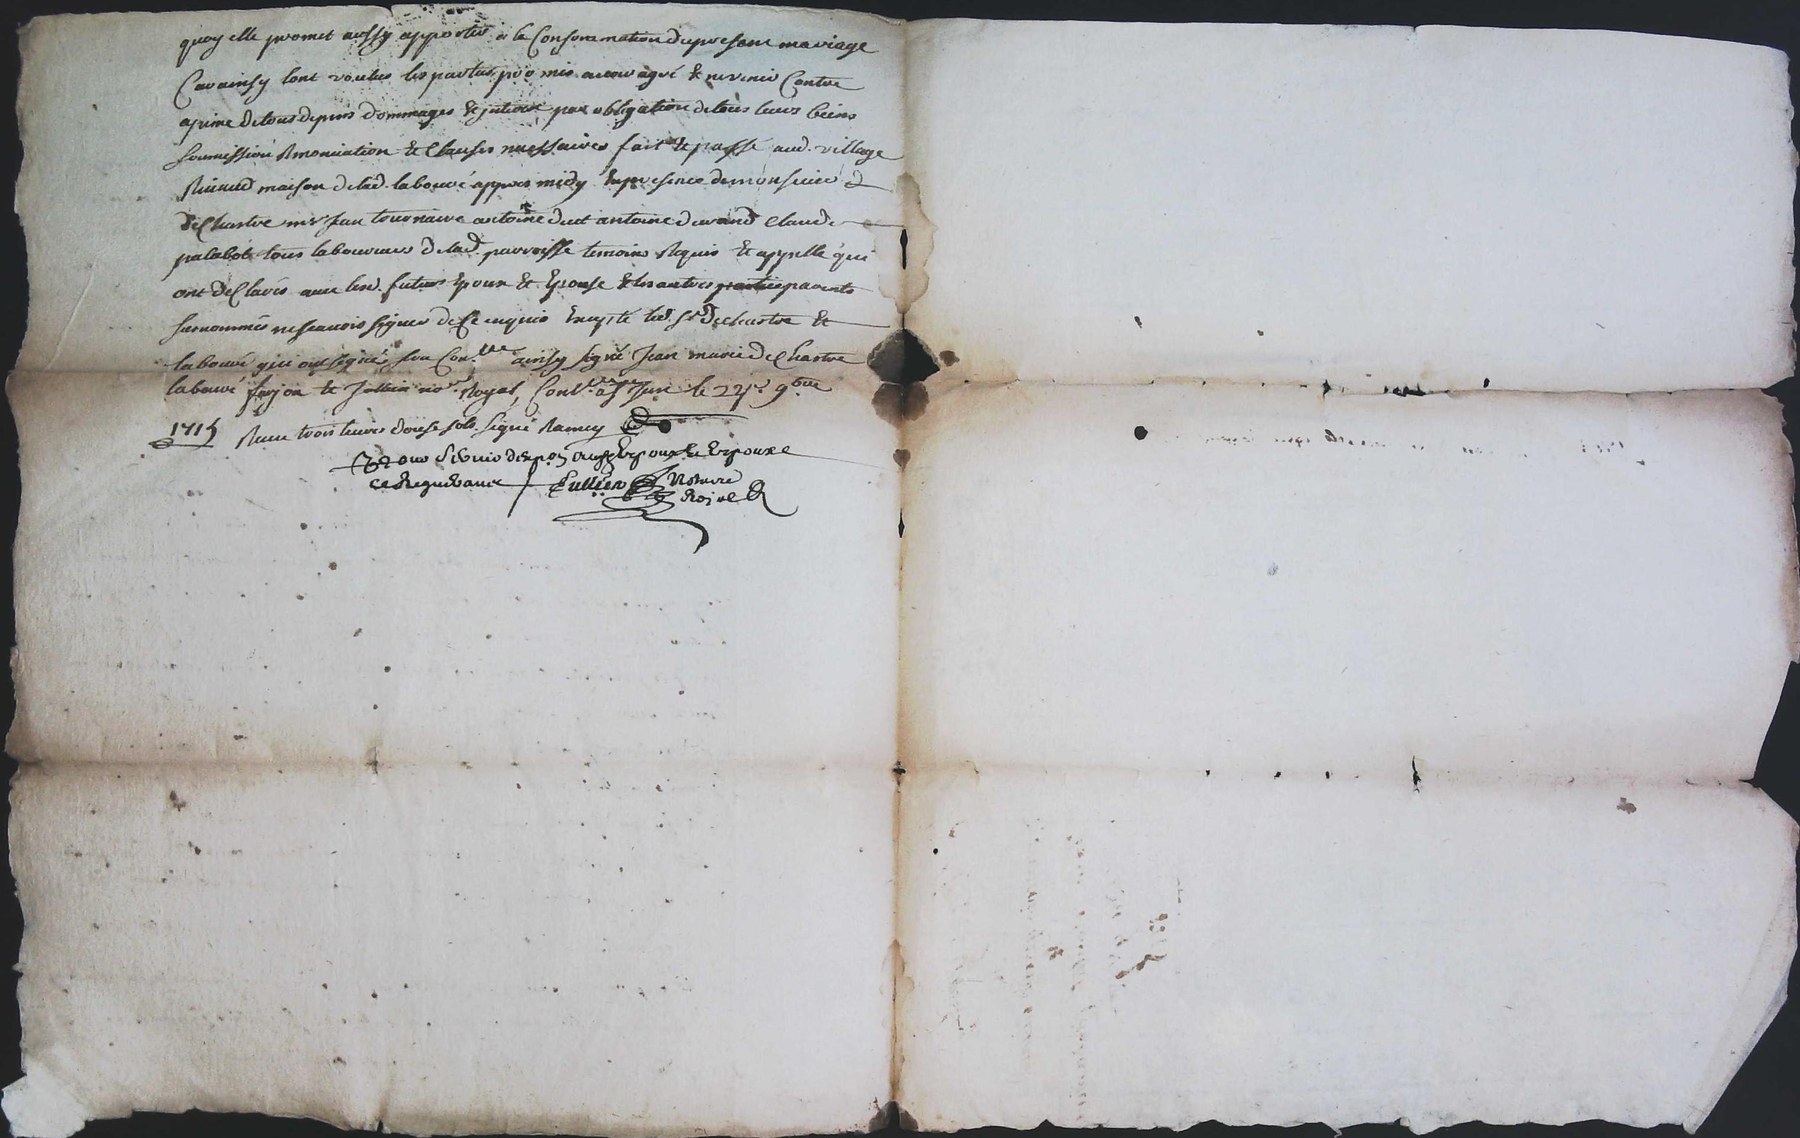 quoy elle promet aussy apporter a la Consommation du present mariage
Car ainsy lont voulus les parties promis avoir agré & ne venir Contre
a peine de tous depens dommages & jnterest par obligation de tous leurs biens
soumission Renonciation & Clauses necessaires fait & passé aud. village
maison de lad. labouré appres midy En presence de monsieur
deChastre mre Jean tournaire antoine duct antoine durand Claude
palabot tous laboureurs de lad. parroisse temoins Requis & appellé qui
ont deClarés avec lesd. futurs Epoux & Epouse & les autres parents
surnommés ne scavoir signer de Ce enquis Excepté led. Sr deChastre &
labouré qui ont signé ainsy signé Jean marie deChastre
labouré farjon & Jullien nore Royal, Conlle a le 22e 9bre
1715 Receu trois livres douse sols signé Ramey
aux Epoux & Epouxe
ce Requerant Jullien Notaire
Roial